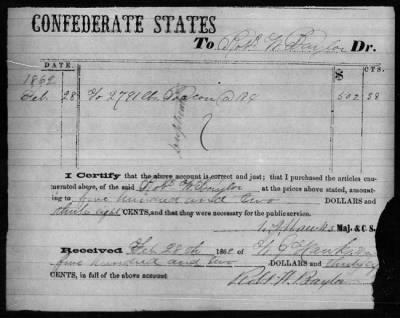 CONFEDERATE STATES
To Robt. W. Baylor Dr.
DATE. $ CTS.
1862
Feb. 28 To 2791 lbs Bacon @ 18¢ 502 38
I Certify that the above account is correct and just; that I purchased the articles enu-
merated above, of the said Robt. W. Baylor at the prices above stated, amount-
ing to five hundred and two DOLLARS and
thirty eight CENTS, and that they were necessary for the public service.
W. J. Hawks Maj. & C. S.
Received Feb 28th 1862 of W. J. Hawks
five hundred and two DOLLARS and thirty
CENTS, in full of the above account
Robt. W. Baylor